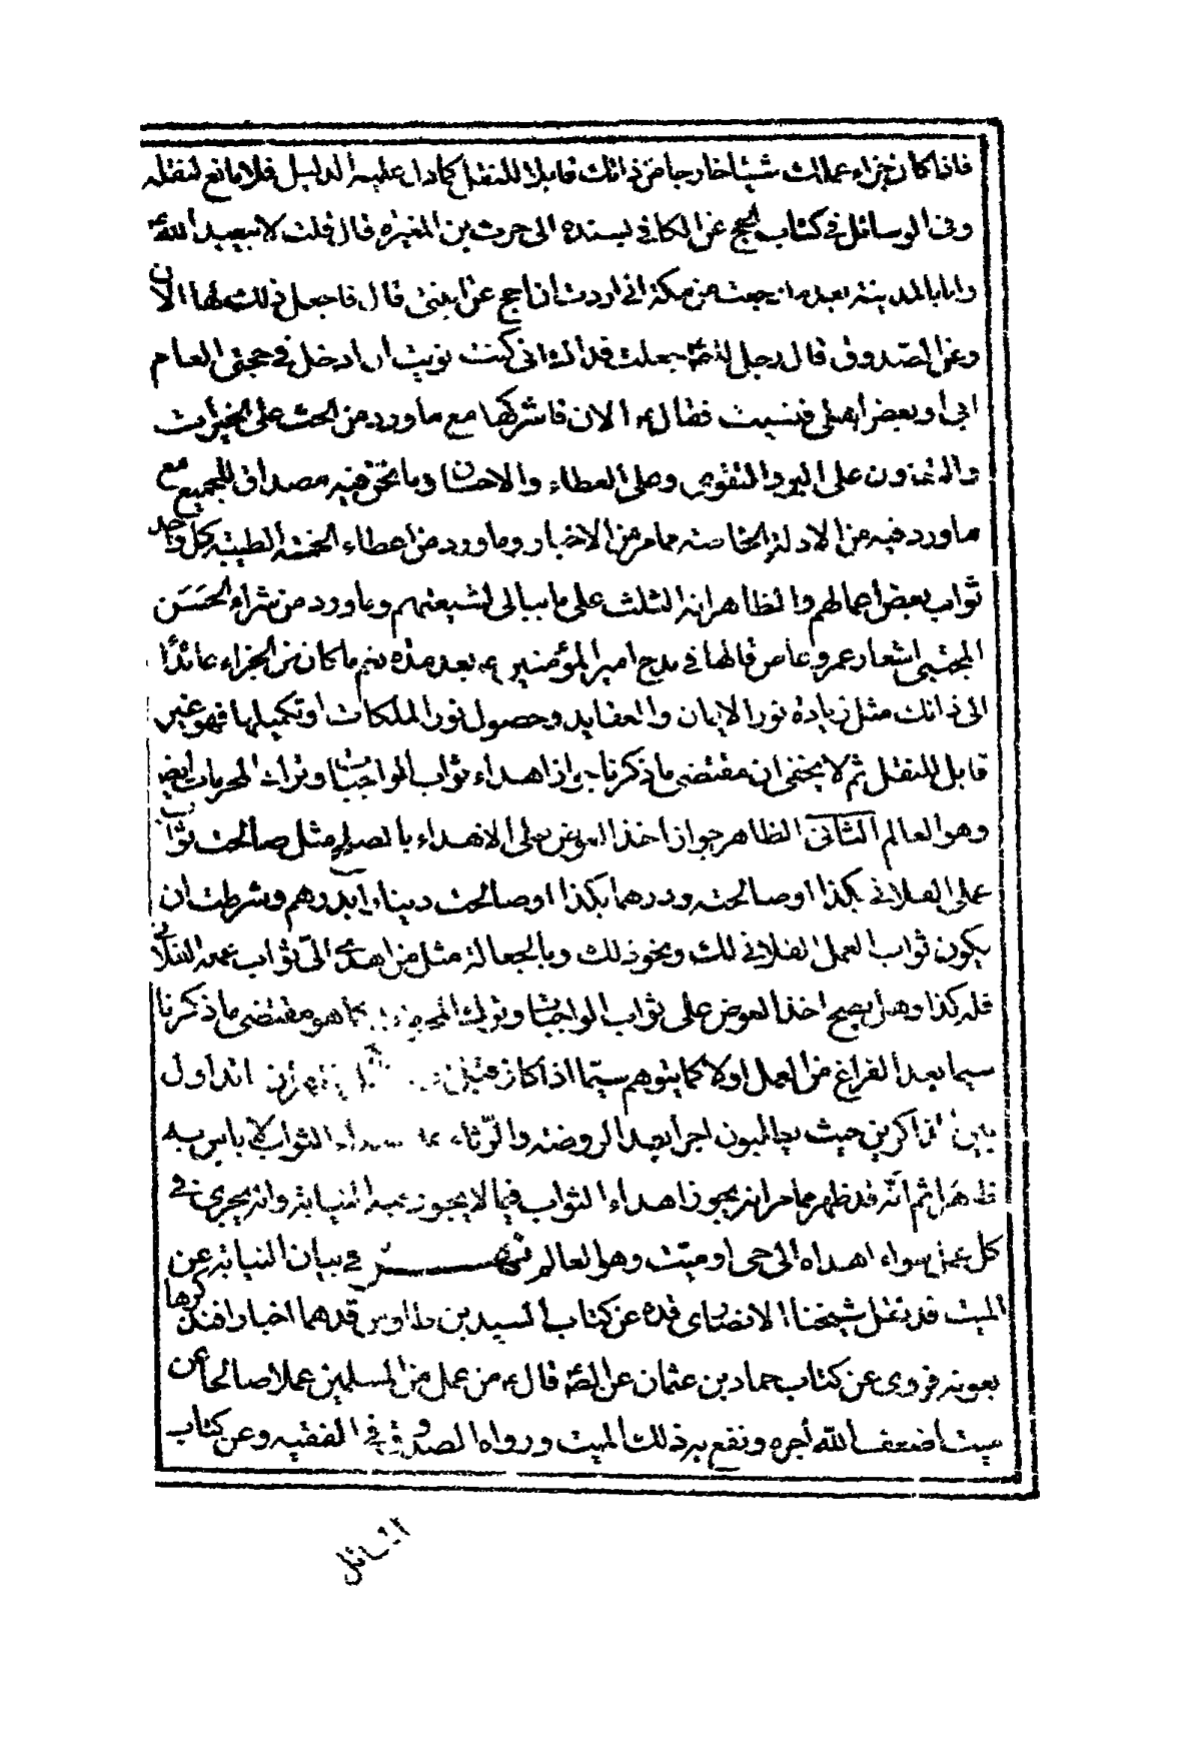 فاذا كان جزاء عملك شيئا خارجا عن ذاتك قابلا للنقل كما دل عليه الدليل فلا مانع لنقله
وفى الوسائل فى كتاب الحج عن الكافى بسنده الى حرث بن المغيره قال قلت لابيعبد اللهؑ
وانا بالمدينة بعد ما رجعت من مكة انى اردت ان احج عن ابنتى قال فاجعل ذلك لها الان
وعن الصدوق قال رجل للصؑ جعلت فداك انى كنت نويت ان ادخل فى حجتى العام
ابى او بعض اهلى فنسيت فقالؑ الان فاشركها مع ما ورد من الحث على الخيرات
والتعاون على البر والتقوى وعلى العطاء والاحسان وما نحن فيه مصداق للجميع مع
ما ورد فيه من الادلة الخاصة مما مر من الاخبار وما ورد من اعطاء الخمسة الطيبة كل واحد
ثواب بعض اعمالهم والظاهر انه الثلث على ما ببالى لشيعتهم وما ورد من شراء الحسن
المجتبى اشعار عمرو عاص قالها فى مدح امير المؤمنينؑ بعد مدة نعم ما كان من الجزاء عائدًا
الى ذاتك مثل زيادة نور الايمان والعقايد وحصول نور الملكات او تكميلها فهو غير
قابل للنقل ثم لا يخفى ان مقتضى ما ذكرنا جواز اهداء ثواب الواجبات وترك المحرمات ايضا
وهو العالم الثانى الظاهر جواز اخذ العوض على الاهداء بالصلح مثل صالحت ثواب
عملى الفلانى بكذا او صالحته ودرهما بكذا او صالحت دينارا بدرهم وشرطت ان
يكون ثواب العمل الفلانى لك ونحو ذلك وبالجعالة مثل من اهدى الىّ ثواب عمله الفلانى
فله كذا وهل يصح اخذ العوض على ثواب الواجبات وترك المحرمات كما هو مقتضى ما ذكرنا
سيما بعد الفراغ من العمل اولا كما يتوهم سيما اذا كان التداول
بين الذاكرين حيث يطالبون اجرا بعد الروضة والرثاء الثواب لا باس به
ظاهرا ثم انه قد ظهر مما مر انه يجوز اهداء الثواب فيما لا يجوز فيه النيابة وانه يجرى فى
كل عمل سواء اهداه الى حى او ميت وهو العالم فى بيان النيابة عن
الميت قد نقل شيخنا الانصارى قده عن كتاب السيد بن طاوس قدهما اخبارا فنذكرها
بعونه فروى عن كتاب حماد بن عثمان عن الصؑ قالؑ من عمل من المسلمين عملا صالحا عن
ميت اضعف الله أجره ونفع به ذلك الميت ورواه الصدوق فى الفقيه وعن كتاب
المسائل